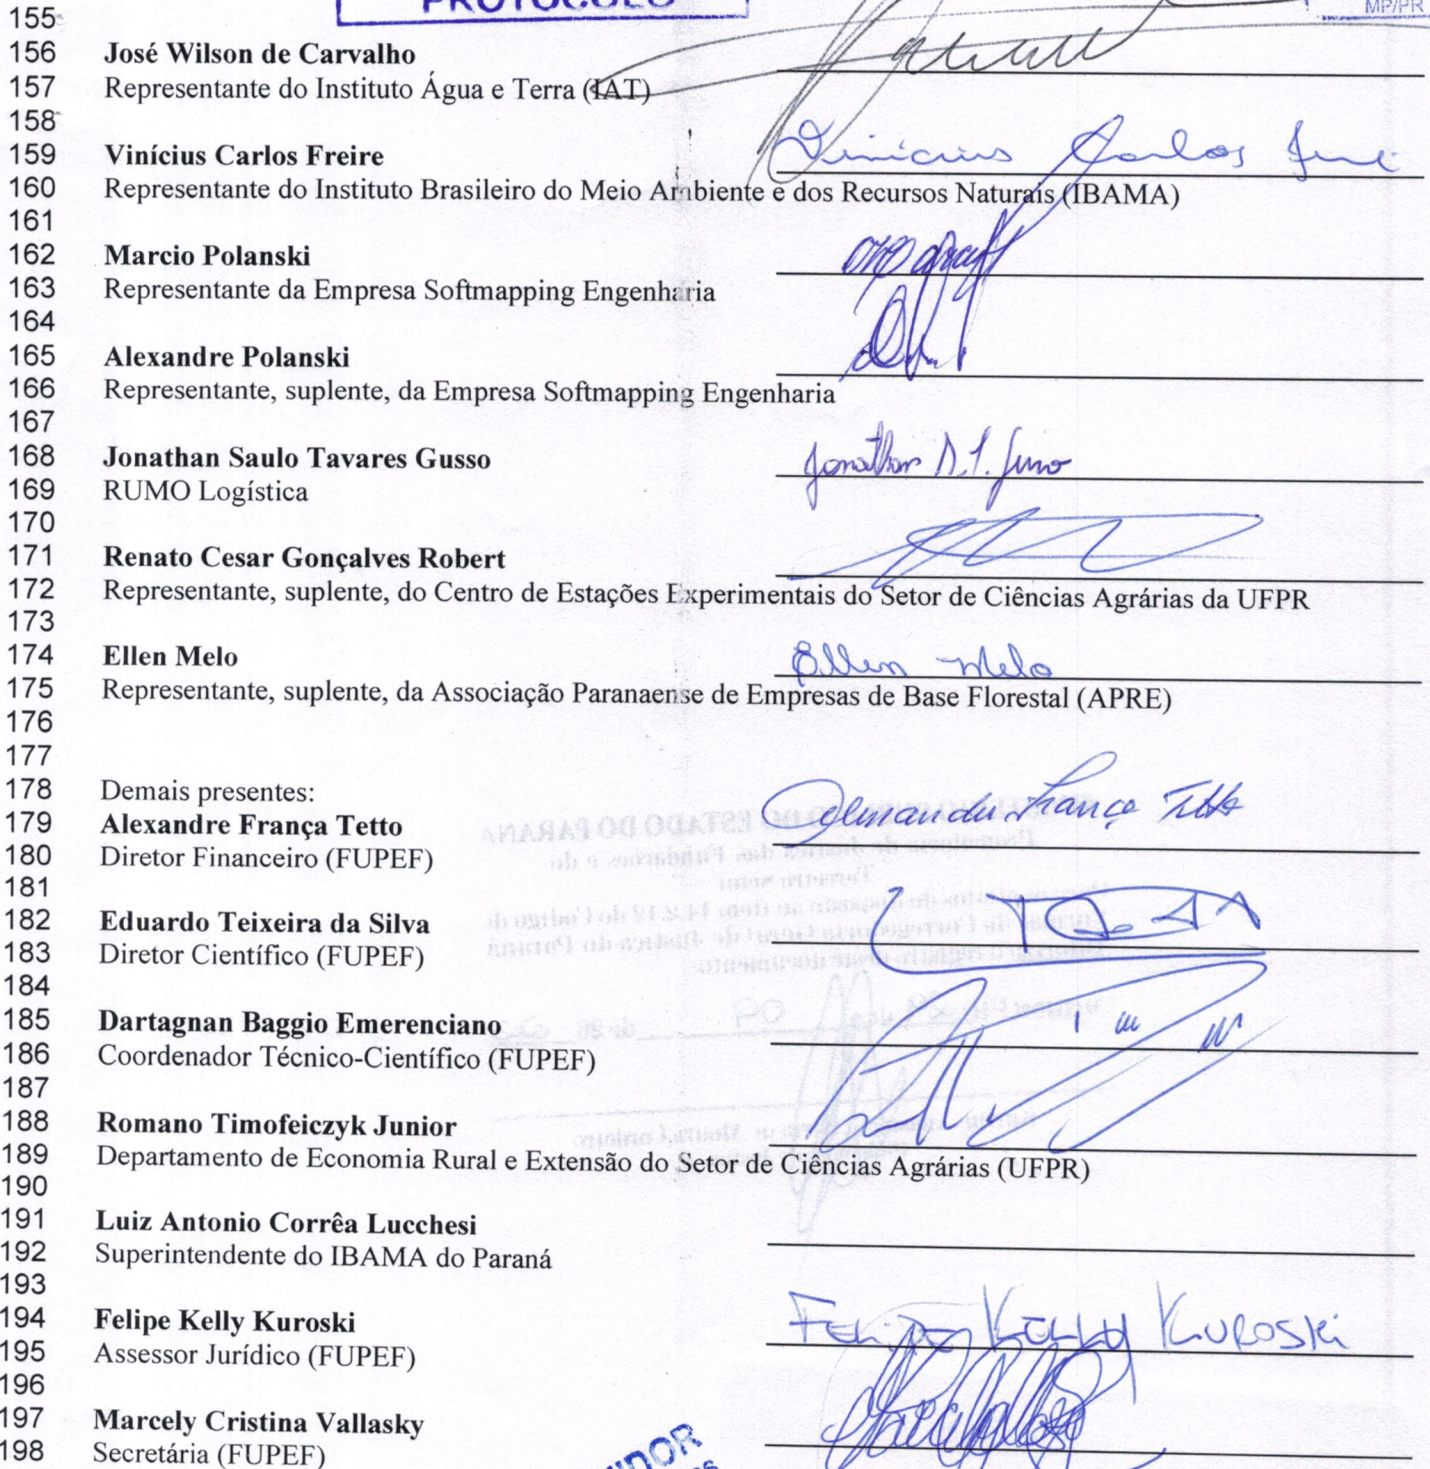 PROTOCOLO
MP/PR
155
156 José Wilson de Carvalho
157 Representante do Instituto Água e Terra (IAT)
158
159 Vinícius Carlos Freire Vinicius Carlos
160 Representante do Instituto Brasileiro do Meio Ambiente e dos Recursos Naturais (IBAMA)
161
162 Marcio Polanski
163 Representante da Empresa Softmapping Engenharia
164
165 Alexandre Polanski
166 Representante, suplente, da Empresa Softmapping Engenharia
167
168 Jonathan Saulo Tavares Gusso Jonathan
169 RUMO Logística
170
171 Renato Cesar Gonçalves Robert
172 Representante, suplente, do Centro de Estações Experimentais do Setor de Ciências Agrárias da UFPR
173
174 Ellen Melo Ellen Melo
175 Representante, suplente, da Associação Paranaense de Empresas de Base Florestal (APRE)
176
177
178 Demais presentes:
179 Alexandre França Tetto Alexandre França Tetto
180 Diretor Financeiro (FUPEF)
181
182 Eduardo Teixeira da Silva
183 Diretor Científico (FUPEF)
184
185 Dartagnan Baggio Emerenciano
186 Coordenador Técnico-Científico (FUPEF)
187
188 Romano Timofeiczyk Junior
189 Departamento de Economia Rural e Extensão do Setor de Ciências Agrárias (UFPR)
190
191 Luiz Antonio Corrêa Lucchesi
192 Superintendente do IBAMA do Paraná
193
194 Felipe Kelly Kuroski FELIPE KELLY KUROSKi
195 Assessor Jurídico (FUPEF)
196
197 Marcely Cristina Vallasky
198 Secretária (FUPEF)